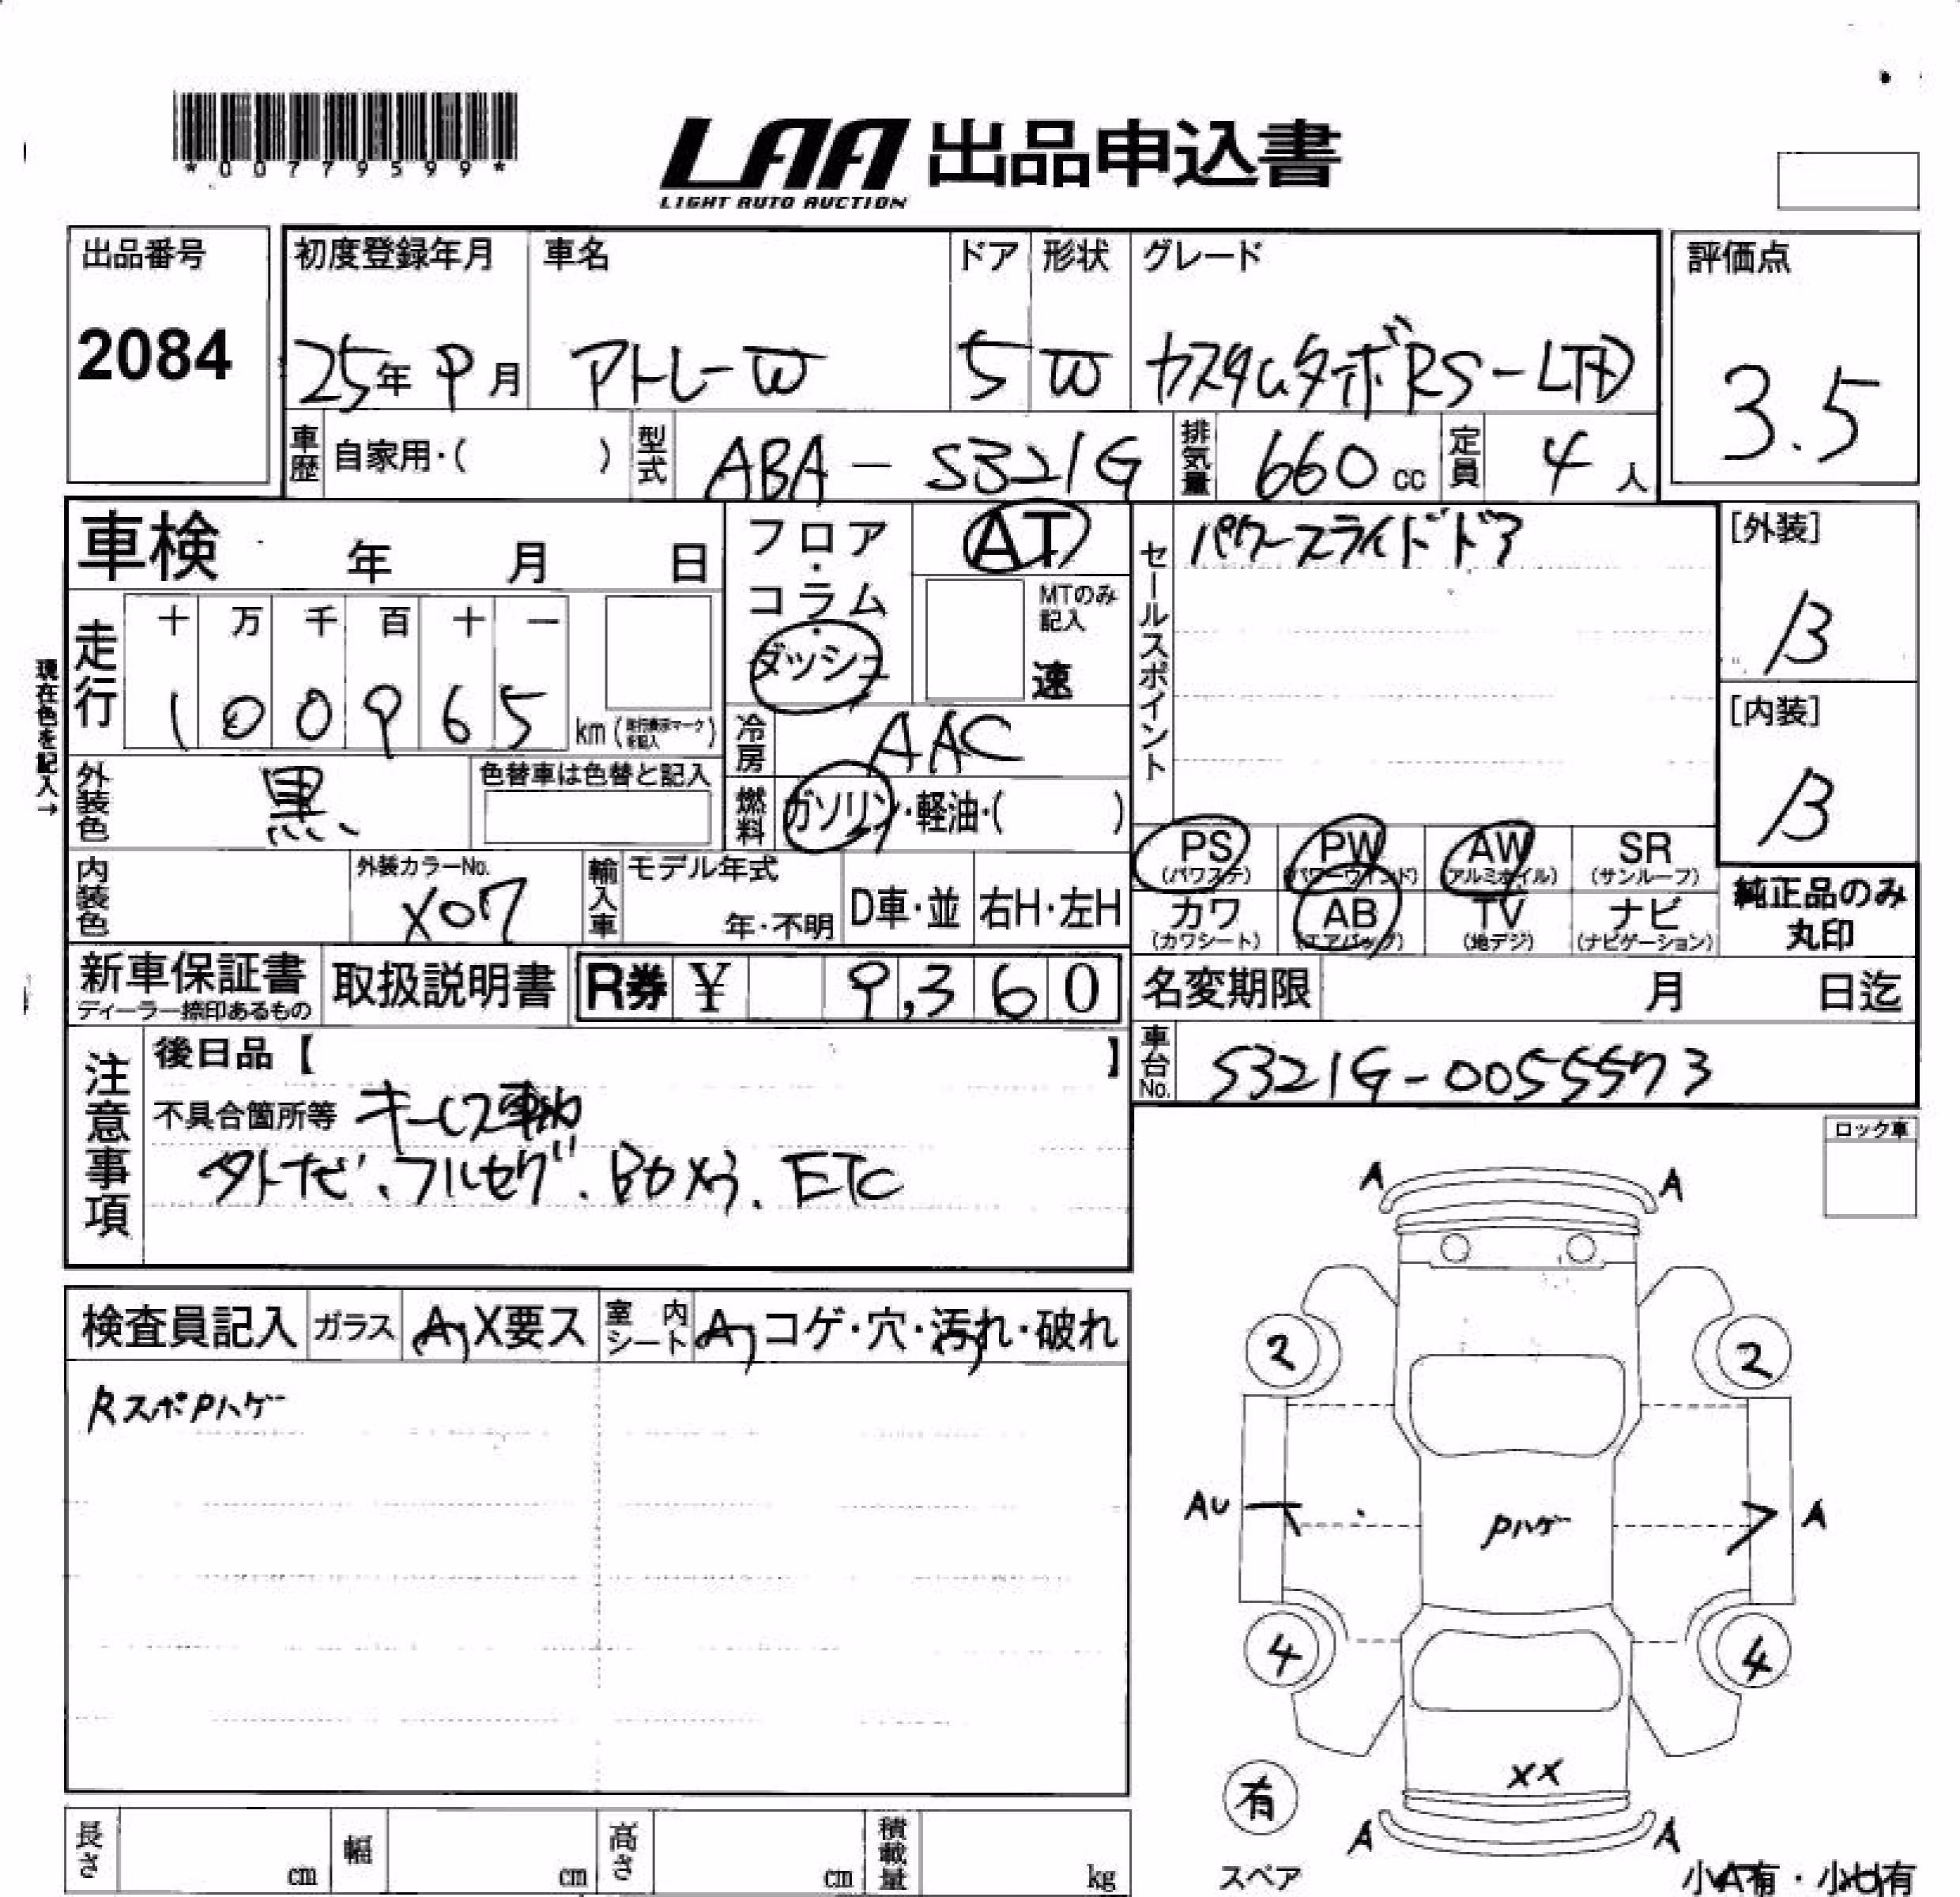 *00779599*
LAA 出品申込書
LIGHT AUTO AUCTION
出品番号 2084
初度登録年月 25年 9月
車名 アトレーW
ドア 5
形状 W
グレード カスタムターボRS-LTD
評価点 3.5
車歴 自家用・( )
型式 ABA-S321G
排気量 660 cc
定員 4 人
車検 年 月 日
フロア・コラム・ダッシュ
AT
MTのみ記入 速
セールスポイント パワースライドドア
[外装] B
[内装] B
現在色を記入→
走行 十 万 千 百 十 一
1 0 0 9 6 5 km
冷房 AAC
外装色 黒
色替車は色替と記入
燃料 ガソリン・軽油・( )
内装色
外装カラーNo. X07
輸入車 モデル年式 年・不明 D車・並 右H・左H
PS (パワステ) PW (パワーウインド) AW (アルミホイル) SR (サンルーフ)
カワ (カワシート) AB (エアバック) TV (地デジ) ナビ (ナビゲーション)
純正品のみ丸印
新車保証書 ディーラー捺印あるもの
取扱説明書
R券 ¥ 9,360
名変期限 月 日迄
車台No. S321G-0055573
注意事項
後日品【 】
不具合箇所等 キーレス
フルセグ、 ETC
ロック車
検査員記入 ガラス A X要ス 室内シート A コゲ・穴・汚れ・破れ
RスポPハゲ
A A
2 2
AU A
Pハゲ
4 4
XX
有
スペア
A A
長さ cm 幅 cm 高さ cm 積載量 kg
小A有・小U有